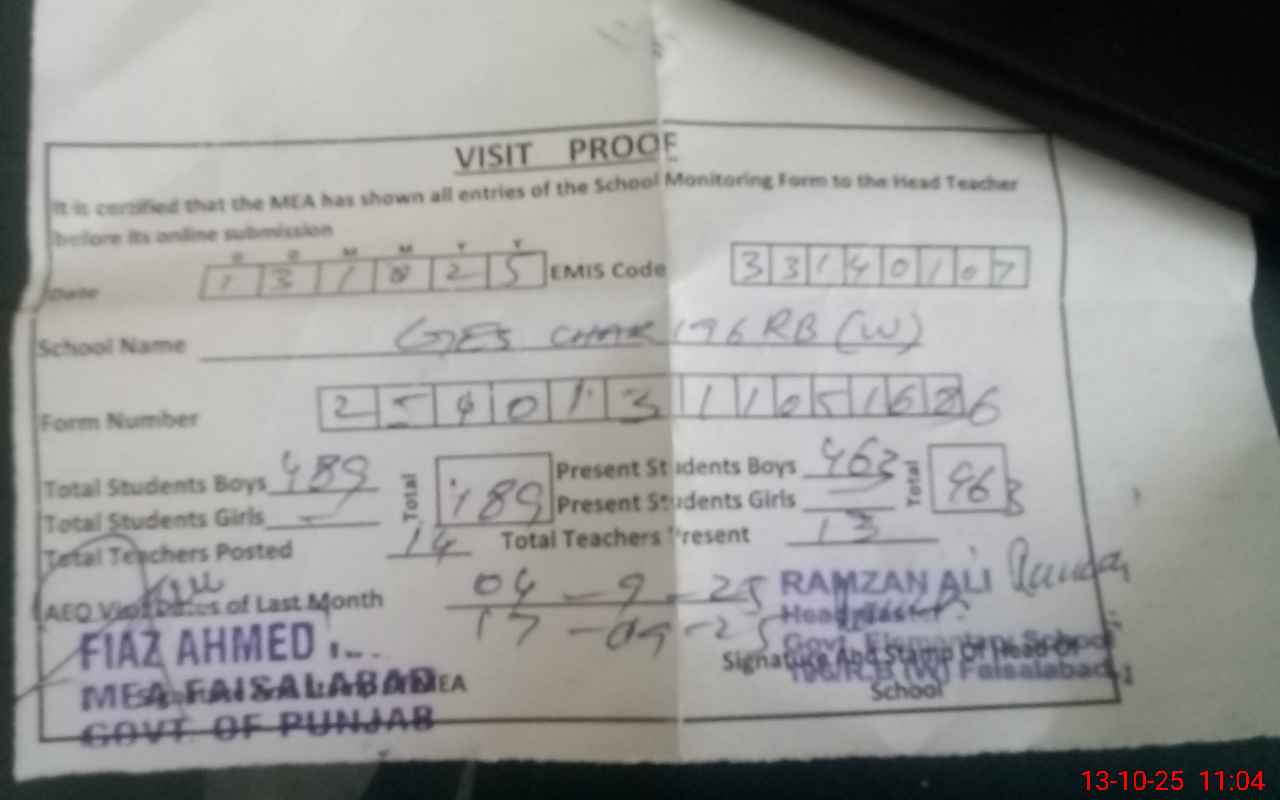 VISIT PROOF
It is certified that the MEA has shown all entries of the School Monitoring Form to the Head Teacher
before its online submission
D D M M Y Y
Date 1 3 1 0 2 5 EMIS Code 3 3 1 4 0 1 0 7
School Name GES CHAK 196 RB (W)
Form Number
Total Students Boys 489 Total 489 Present Students Boys 463 Total 463
Total Students Girls — Present Students Girls —
Total Teachers Posted 14 Total Teachers Present 13
AEO Visit Dates of Last Month 04-9-25
17-09-25
RAMZAN ALI
Headmaster
Govt. Elementary School
196/R.B (W) Faisalabad
Signature And Stamp Of Head Of
School
FIAZ AHMED
MEA FAISALABAD
MEA
GOVT. OF PUNJAB
13-10-25 11:04